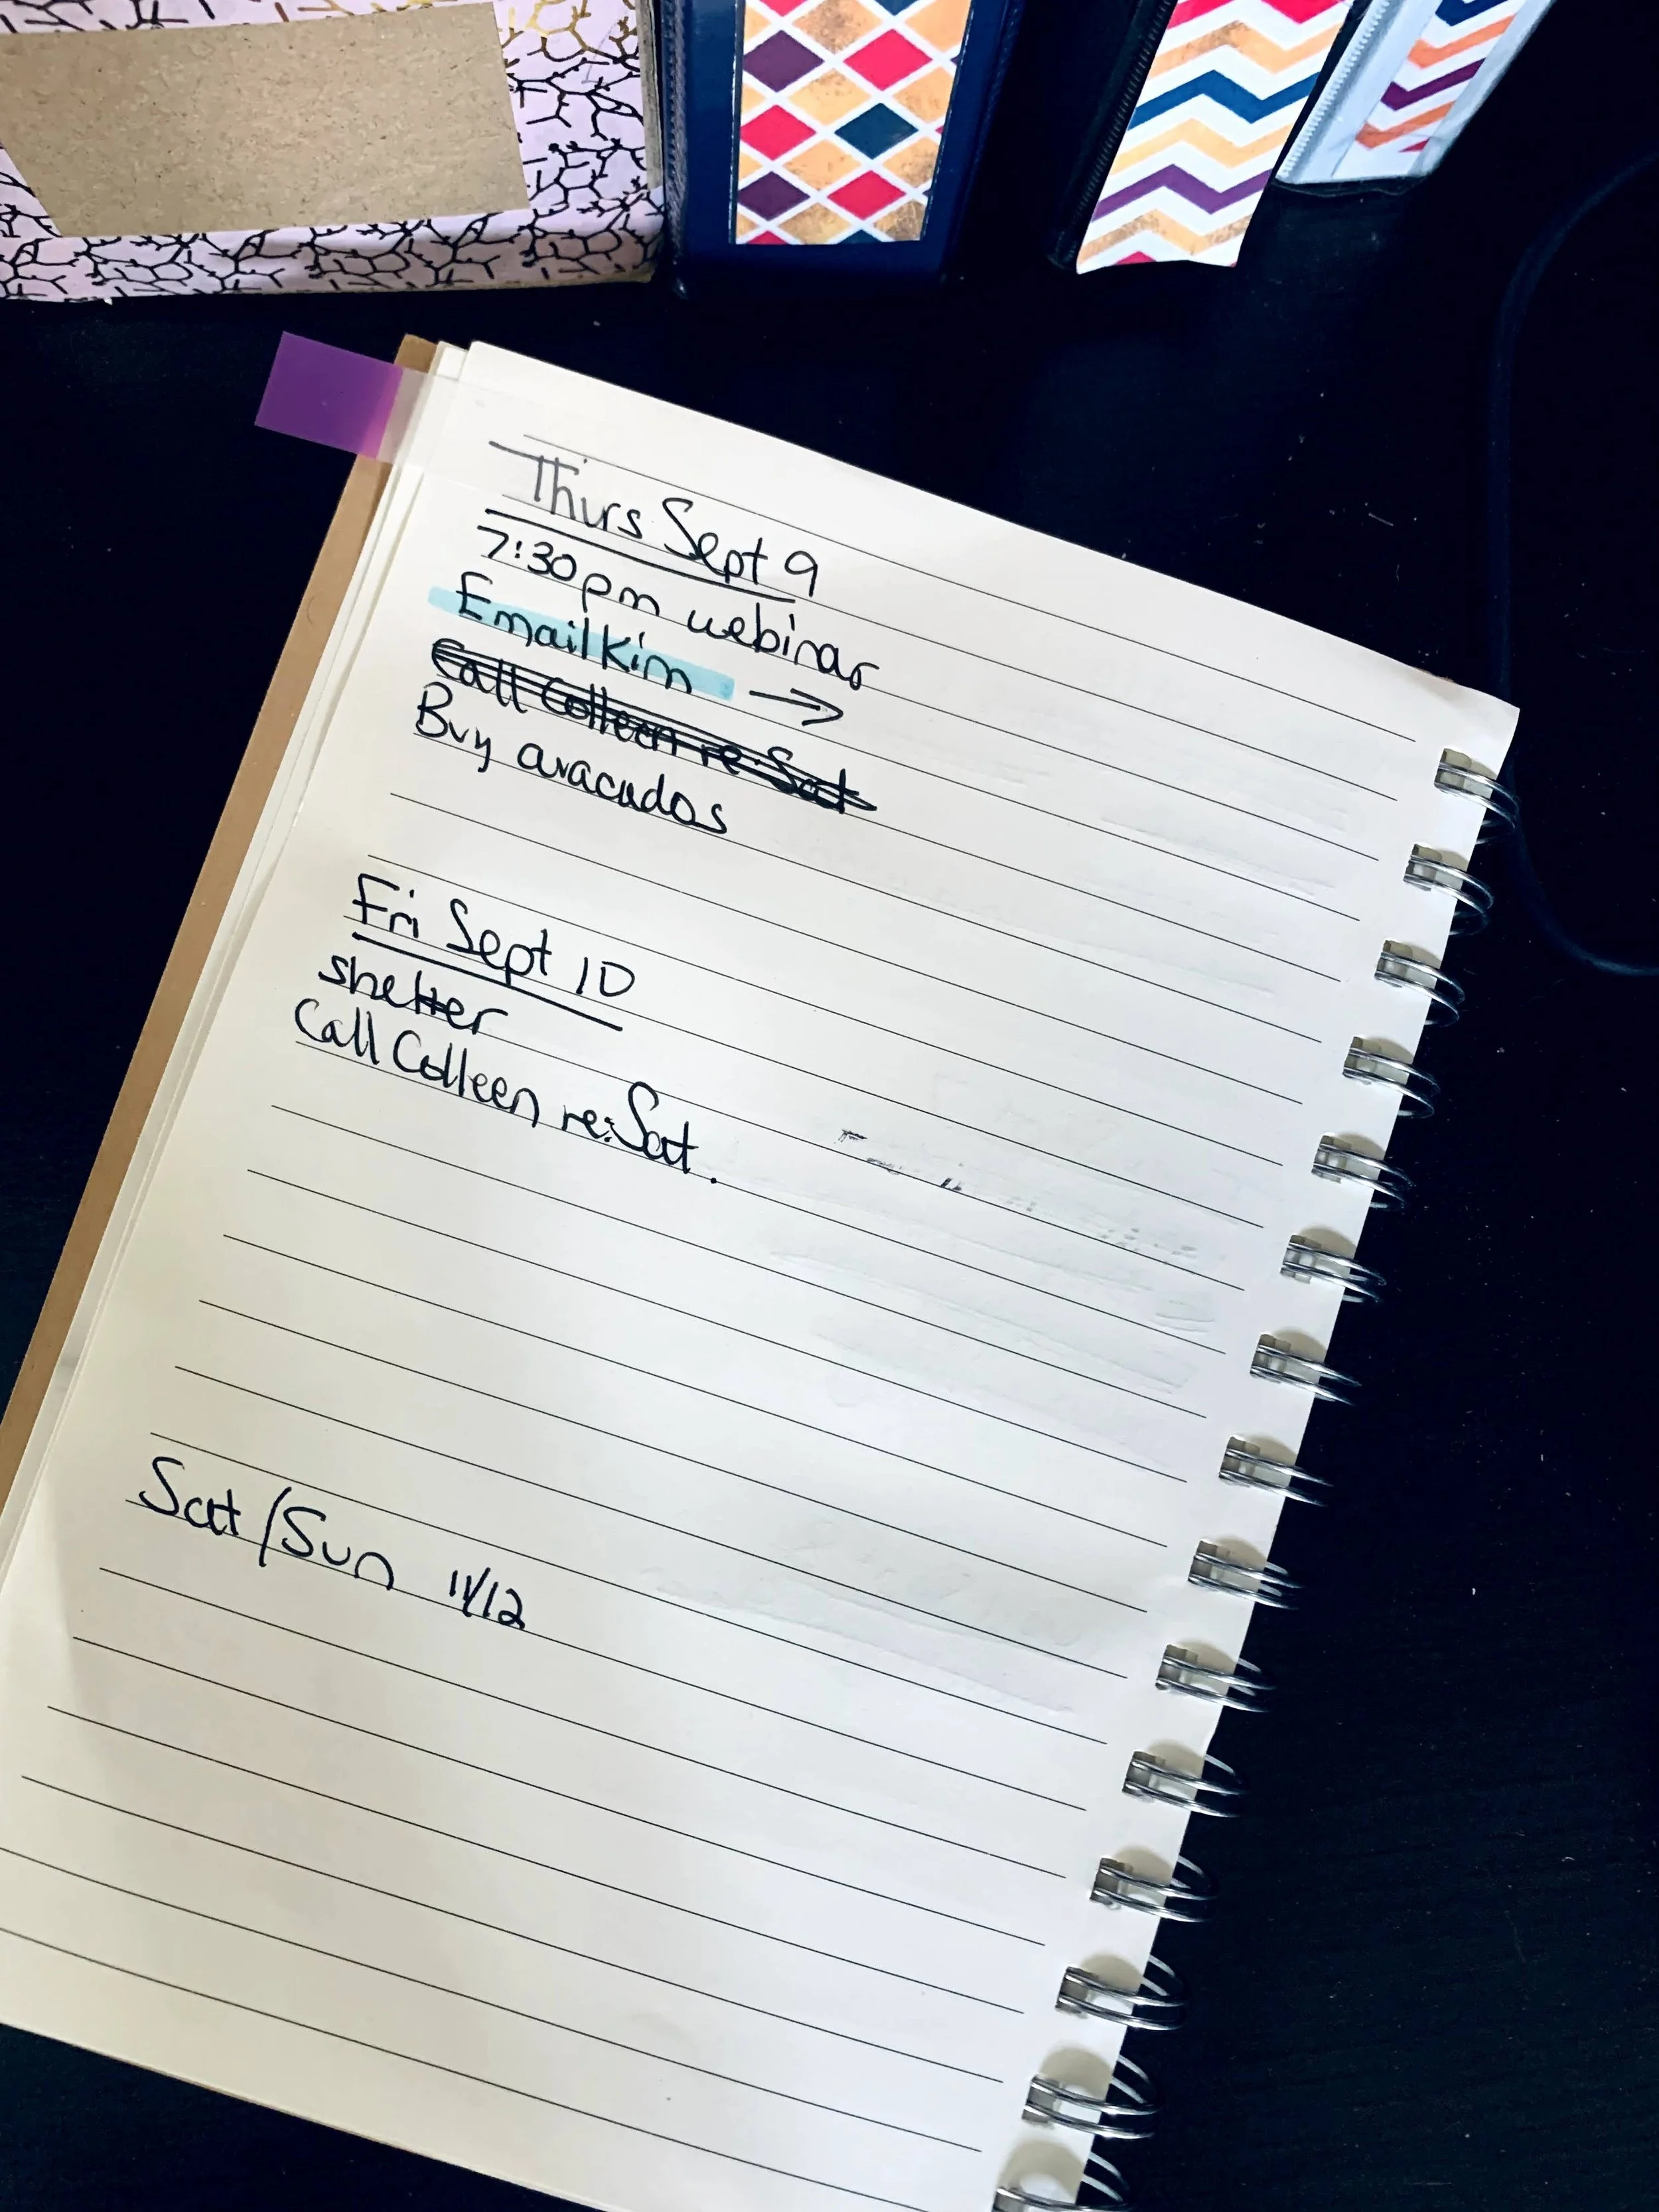 Thurs Sept 9
7:30pm webinar
Email Kim →
Call Colleen re: Sat
Buy avacados
Fri Sept 10
shelter
Call Colleen re: Sat.
Sat/Sun 11/12